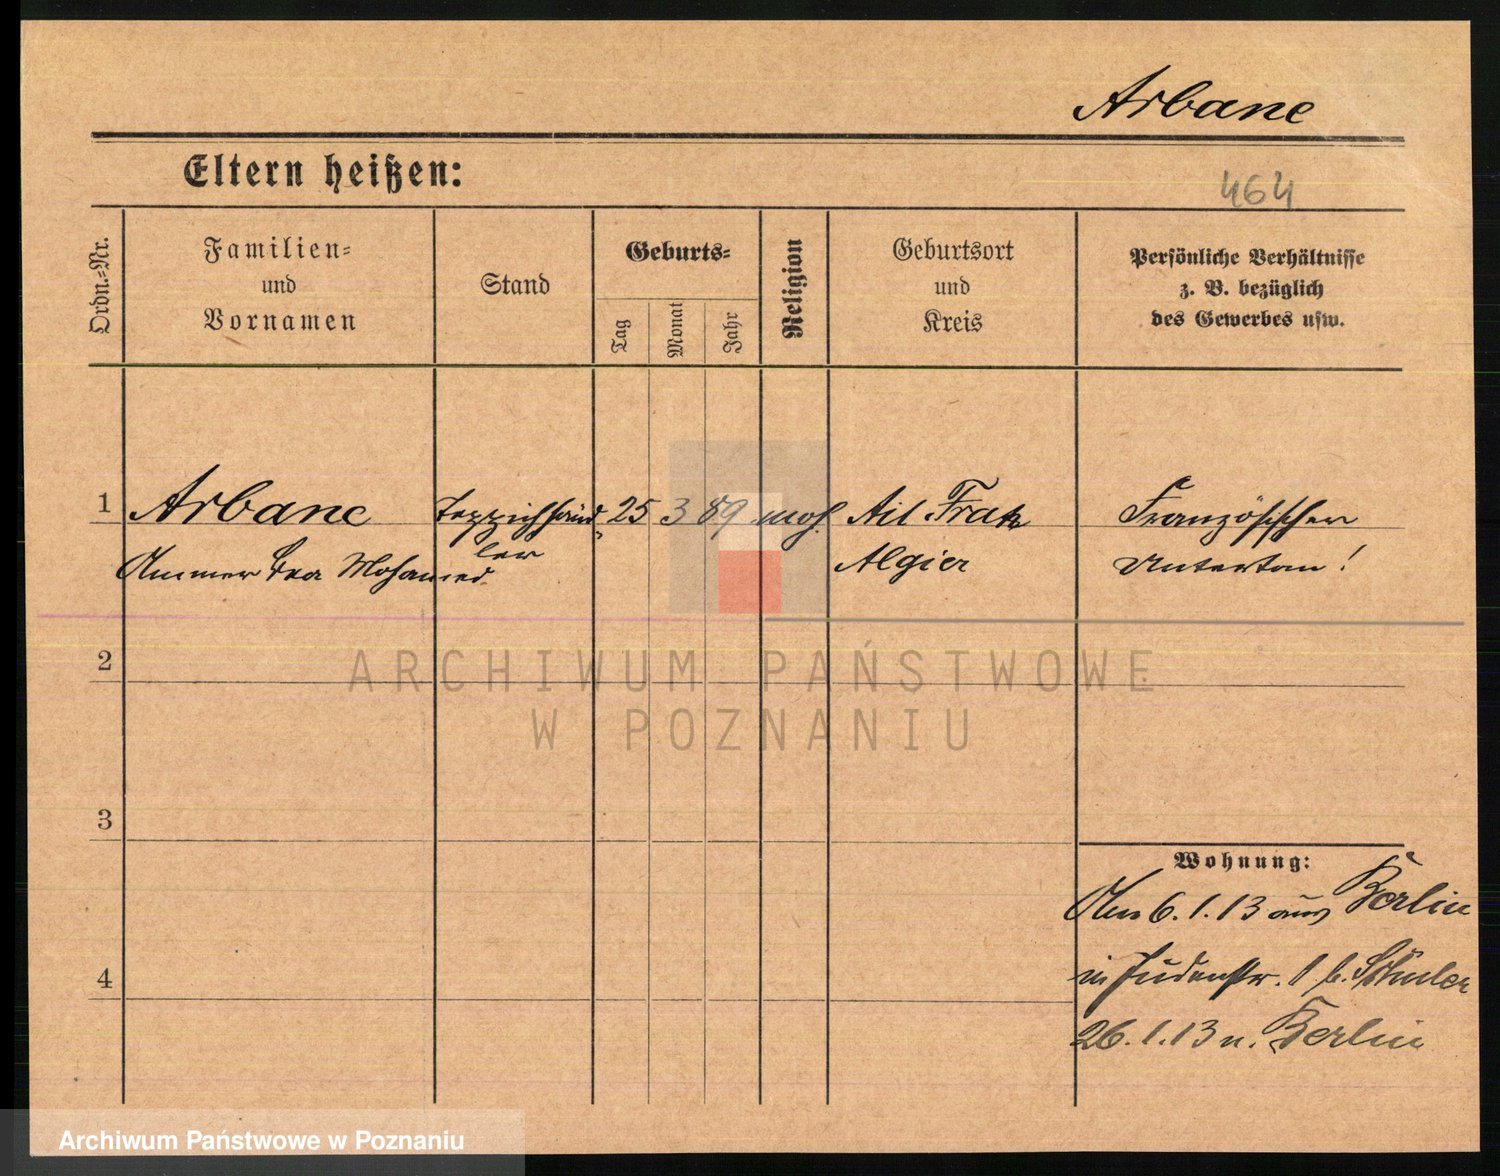 Arbane
Eltern heißen:
464
Ordn.-Nr.
Familien-
und
Vornamen
Stand
Geburts-
Tag
Monat
Jahr
Religion
Geburtsort
und
Kreis
Persönliche Verhältnisse
z. B. bezüglich
des Gewerbes usw.
1 Arbane Teppichhänd- 25 3 89 moh. Ait Französischer
ler
Ammer Mohamed Algier Untertan!
2
3
4
Wohnung:
Am 6.1.13 aus Berlin
in Judenstr. 1 b.
26.1.13 n. Berlin
ARCHIWUM PAŃSTWOWE
W POZNANIU
Archiwum Państwowe w Poznaniu